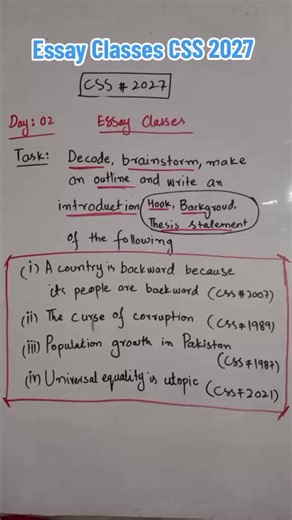 Essay Classes CSS 2027
CSS # 2027
Day: 02 Essay Classes
Task: Decode, brainstorm, make
an outline and write an
introduction (Hook, Backgroud,
Thesis statement)
of the following
(i) A country is backward because
its people are backward (CSS#2007)
(ii) The curse of corruption (CSS#1989)
(iii) Population growth in Pakistan
(CSS#1987)
(iv) Universal equality is utopic (CSS#2021)